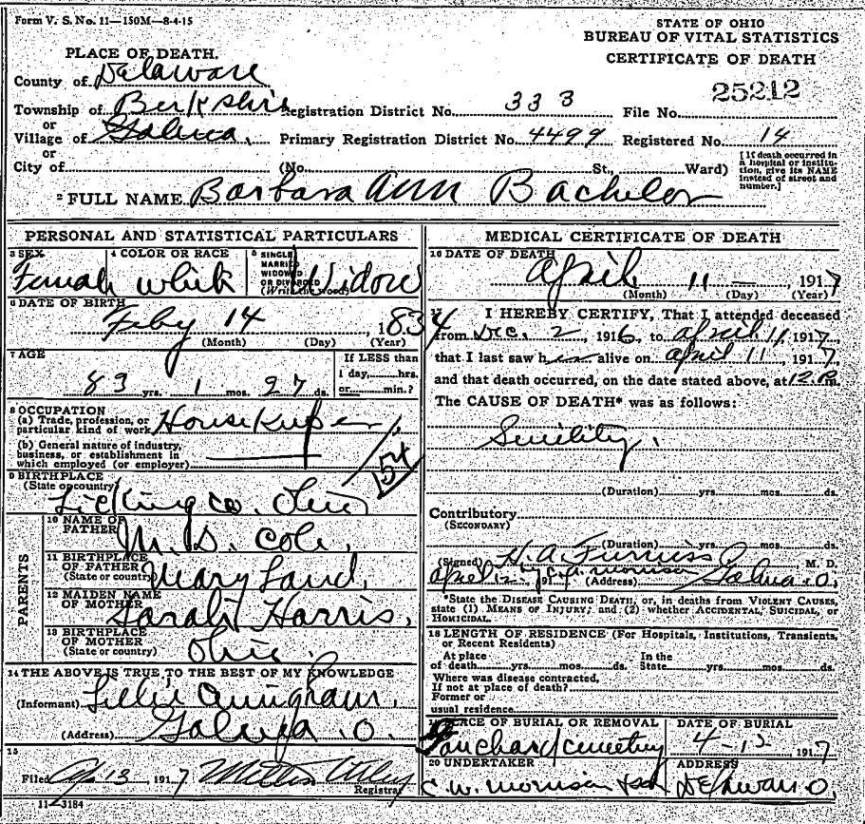 Form V. S. No. 11—150M—8-4-15
STATE OF OHIO
BUREAU OF VITAL STATISTICS
CERTIFICATE OF DEATH
PLACE OF DEATH.
County of Delaware
Township of Berkshire Registration District No. 333 File No. 25212
or
Village of Galena, Primary Registration District No. 4499 Registered No. 14
or
City of (No. St., Ward) [If death occurred in a hospital or institution, give its NAME instead of street and number.]
2 FULL NAME Barbara Ann Bachelor
PERSONAL AND STATISTICAL PARTICULARS
3 SEX 4 COLOR OR RACE 5 SINGLE MARRIED WIDOWED OR DIVORCED (Write the word)
Female White Widow
6 DATE OF BIRTH
Feby 14, 1834
(Month) (Day) (Year)
7 AGE If LESS than
1 day, hrs.
83 yrs. 1 mos. 27 ds. or min.?
8 OCCUPATION
(a) Trade, profession, or particular kind of work Housekeeper
(b) General nature of industry, business, or establishment in which employed (or employer)
154
9 BIRTHPLACE
(State or country)
Licking co. Ohio
PARENTS
10 NAME OF FATHER
Cole,
11 BIRTHPLACE OF FATHER (State or country) Mary Land,
12 MAIDEN NAME OF MOTHER Sarah Harris,
13 BIRTHPLACE OF MOTHER (State or country) Ohio.
14 THE ABOVE IS TRUE TO THE BEST OF MY KNOWLEDGE
(Informant) Lillie
(Address) Galena O.
15
Filed Ap 13 1917
Registrar
11-3184
MEDICAL CERTIFICATE OF DEATH
16 DATE OF DEATH
April 11 — , 1917
(Month) (Day) (Year)
17 I HEREBY CERTIFY, That I attended deceased
from Dec. 2, 1916, to April 11, 1917,
that I last saw her alive on April 11, 1917,
and that death occurred, on the date stated above, at 12 P.m.
The CAUSE OF DEATH* was as follows:
Senility.
(Duration) yrs. mos. ds.
Contributory
(SECONDARY)
(Duration) yrs. mos. ds.
(Signed) H. A. Furniss M. D.
April 12 (Address) Galena O.
*State the DISEASE CAUSING DEATH, or, in deaths from VIOLENT CAUSES,
state (1) MEANS OF INJURY; and (2) whether ACCIDENTAL, SUICIDAL, or
HOMICIDAL.
18 LENGTH OF RESIDENCE (For Hospitals, Institutions, Transients,
or Recent Residents)
At place In the
of death yrs. mos. ds. State yrs. mos. ds.
Where was disease contracted,
If not at place of death?
Former or
usual residence
19 PLACE OF BURIAL OR REMOVAL DATE OF BURIAL
cemetery 4-13 1917
20 UNDERTAKER ADDRESS
C. W. Morrison & Son Delaware O.